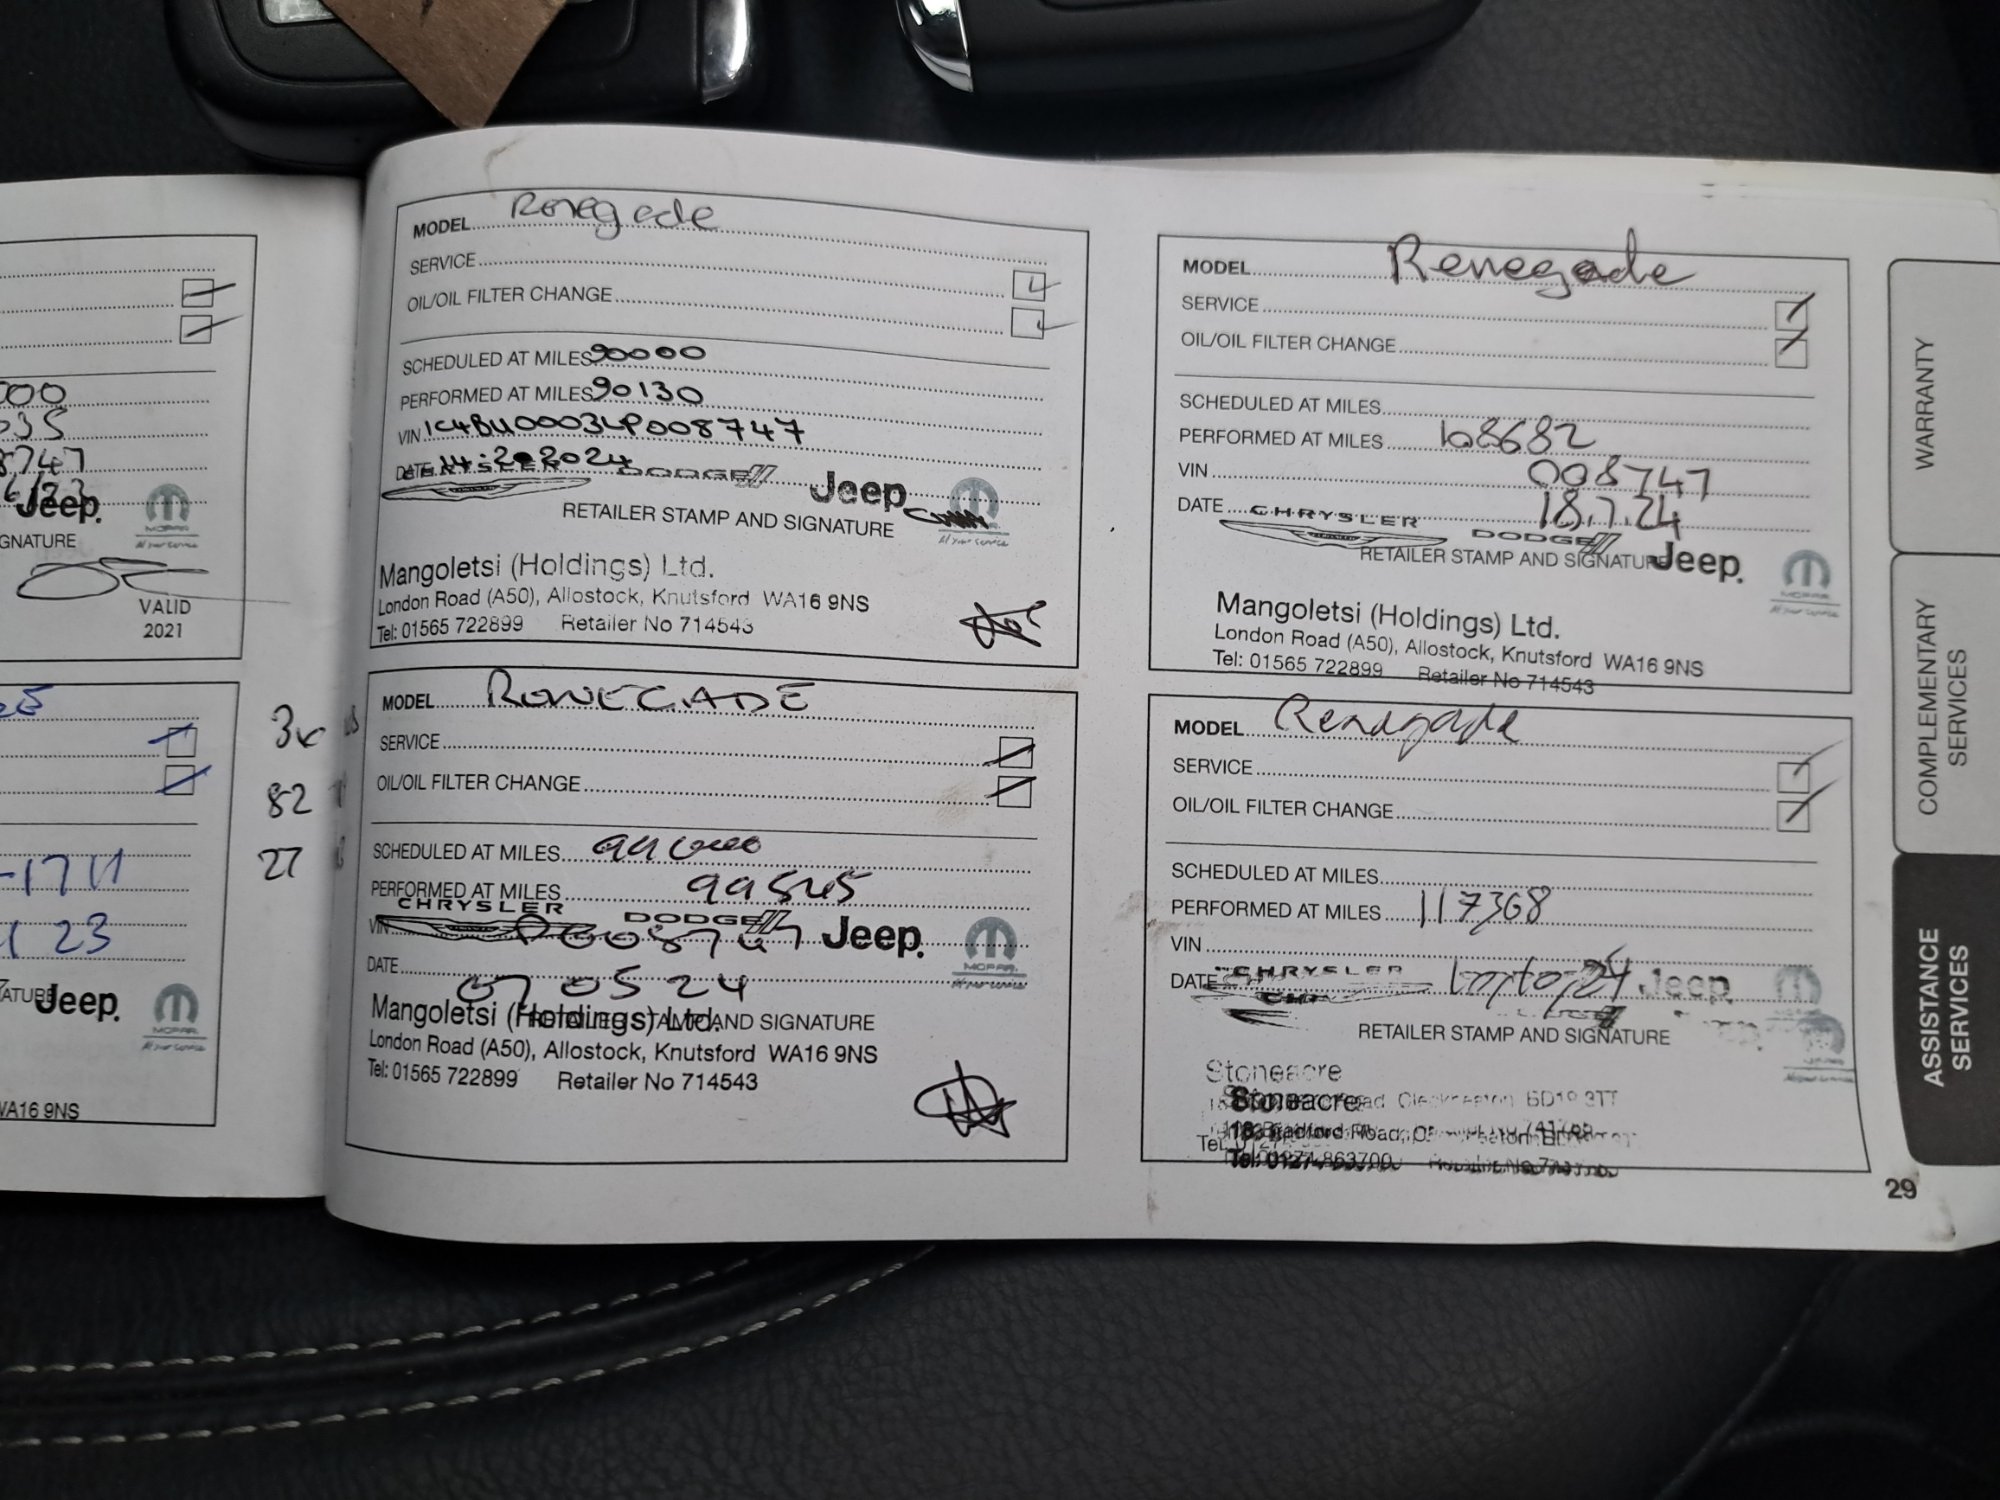 000
035
8747
6/23
Jeep.
MOPAR
At your service
GNATURE
VALID
2021
-1711
23
ATURE Jeep.
MOPAR
At your service
WA16 9NS
82
27
MODEL Renegade
SERVICE
OIL/OIL FILTER CHANGE
SCHEDULED AT MILES 90000
PERFORMED AT MILES 90130
VIN 1C4BU0003LP008747
DATE 14.2.2024
DODGE Jeep
RETAILER STAMP AND SIGNATURE
At your service
Mangoletsi (Holdings) Ltd.
London Road (A50), Allostock, Knutsford WA16 9NS
Tel: 01565 722899 Retailer No 714543
MODEL RENEGADE
SERVICE
OIL/OIL FILTER CHANGE
SCHEDULED AT MILES 99000
PERFORMED AT MILES 99545
CHRYSLER DODGE Jeep.
MOPAR
VIN P008747
DATE 07 05 24
RETAILER STAMP AND SIGNATURE
Mangoletsi (Holdings) Ltd.
London Road (A50), Allostock, Knutsford WA16 9NS
Tel: 01565 722899 Retailer No 714543
MODEL Renegade
SERVICE
OIL/OIL FILTER CHANGE
SCHEDULED AT MILES
PERFORMED AT MILES 108682
VIN 008747
DATE 18.7.24
CHRYSLER DODGE Jeep.
RETAILER STAMP AND SIGNATURE
MOPAR
At your service
Mangoletsi (Holdings) Ltd.
London Road (A50), Allostock, Knutsford WA16 9NS
Tel: 01565 722899 Retailer No 714543
MODEL Renegade
SERVICE
OIL/OIL FILTER CHANGE
SCHEDULED AT MILES
PERFORMED AT MILES 117368
VIN
DATE
CHRYSLER Jeep
RETAILER STAMP AND SIGNATURE
Stoneacre
Stoneacre
Bradford Road,
Tel: 01274 863700
WARRANTY
COMPLEMENTARY
SERVICES
ASSISTANCE
SERVICES
29